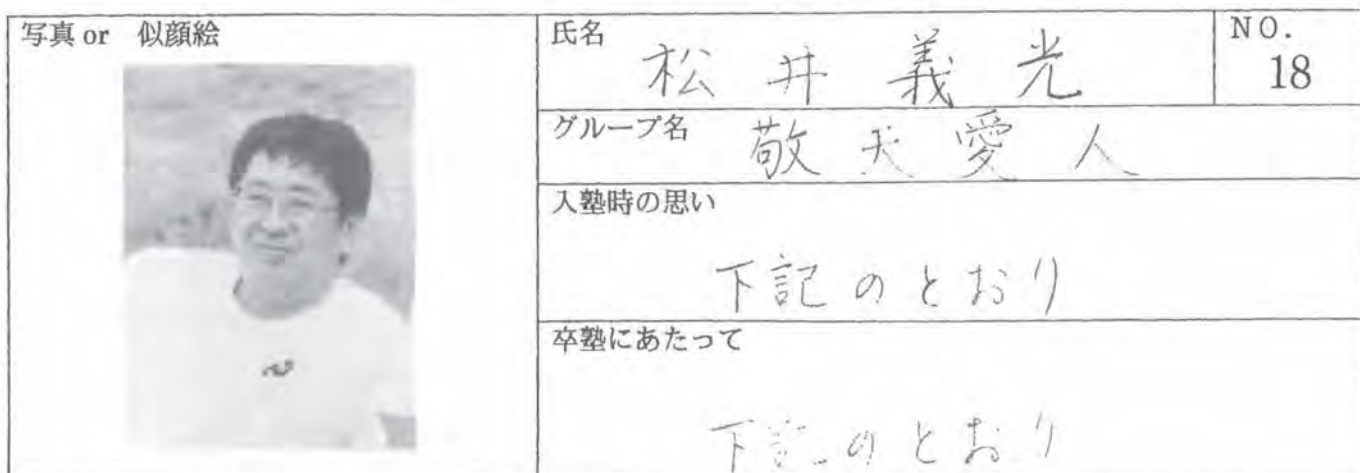 写真 or 似顔絵
氏名
松井義光
NO.
18
グループ名
敬天愛人
入塾時の思い
下記のとおり
卒塾にあたって
下記のとおり